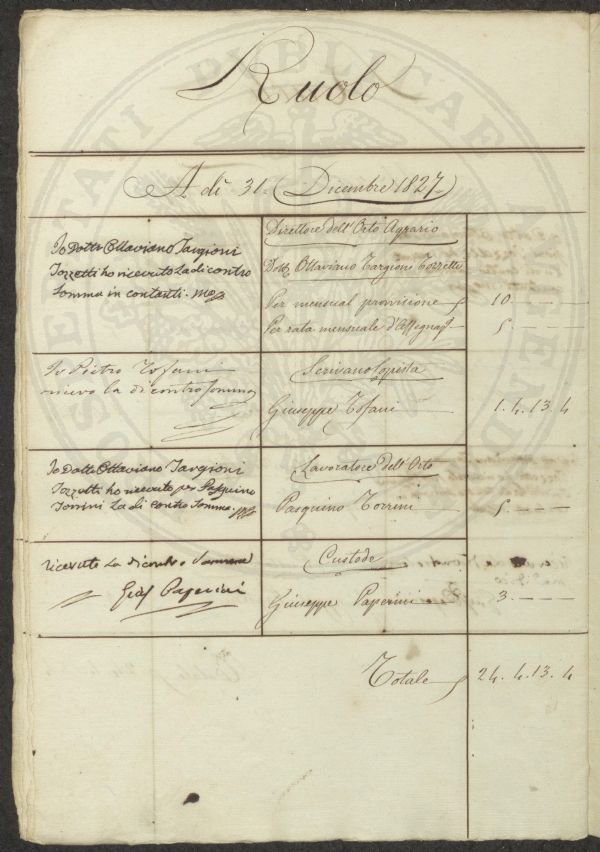 Ruolo
A dì 31. Dicembre 1827.
Io Dottr Ottaviano Targioni
Tozzetti ho ricevuto la di contro
somma in contanti. Mp
Direttore dell'Orto Agrario
Dott. Ottaviano Targioni Tozzetti
Per mensual provvisione 10. — — —
Per rata mensuale d'Assegnao 5. — — —
Io Pietro Tofani
ricevo la di contro somma
Scrivano Copista
Giuseppe Tofani 1. 4. 13. 4
Io Dottr Ottaviano Targioni
Tozzetti ho ricevuto per Pasquino
Torrini la di contro somma. Mp
Lavoratore dell'Orto
Pasquino Torrini 5. — — —
ricevuto la di contro somma
Gius Paperini
Custode
Giuseppe Paperini 3. — — —
Totale 24. 4. 13. 4